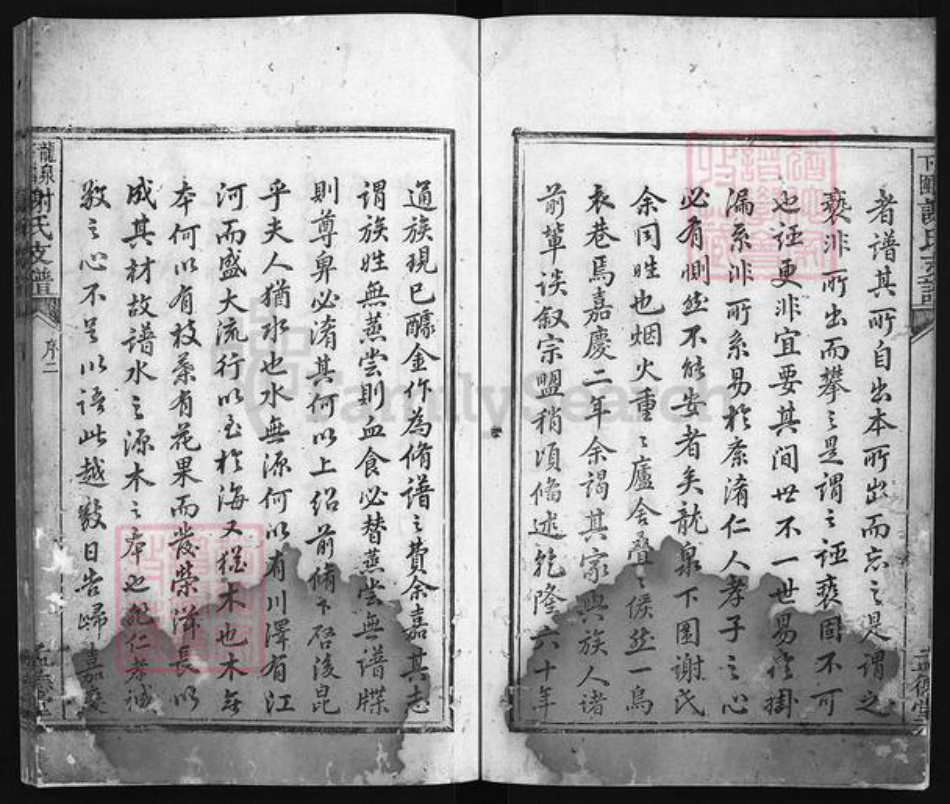 者譜其所自出本所出而忘之是謂之
褻非所出而攀之是謂之誣褻固不可
也誣更非宜要其間世不一世易沿掛
漏系非所系易於紊淆仁人孝子之心
必有惻然不能安者矣龍泉下圍謝氏
余同姓也烟火重〻廬舍疊〻儼然一烏
衣巷焉嘉慶二年余謁其家與族人諸
前軰談叙宗盟稍頃備述乾隆六十年
通族現已醵金作為脩譜之費余嘉其志
謂族姓無蒸嘗則血食必替蒸嘗無譜牒
則尊卑必淆其何以上紹前脩下啓後昆
乎夫人猶水也水無源何以有川澤有江
河而盛大流行以至於海又猶木也木無
本何以有枝葉有花果而發榮滋長以
成其材故譜水之源木之本也非仁孝誠
敬之心不足以語此越數日告歸嘉慶
龍泉
謝氏支譜
序二
FamilySearch